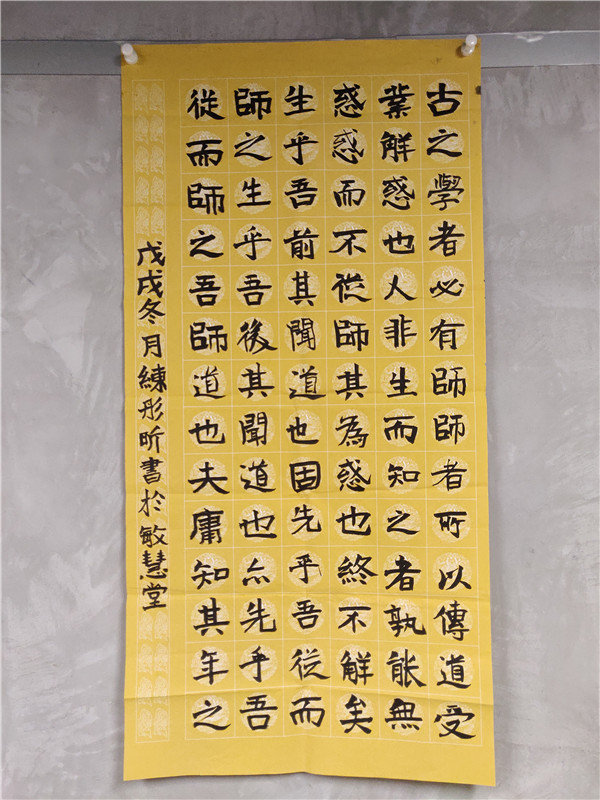 古之學者必有師師者所以傳道受
業解惑也人非生而知之者孰能無
惑惑而不從師其為惑也終不解矣
生乎吾前其聞道也固先乎吾從而
師之生乎吾後其聞道也亦先乎吾
從而師之吾師道也夫庸知其年之
戊戌冬月練彤昕書於敏慧堂